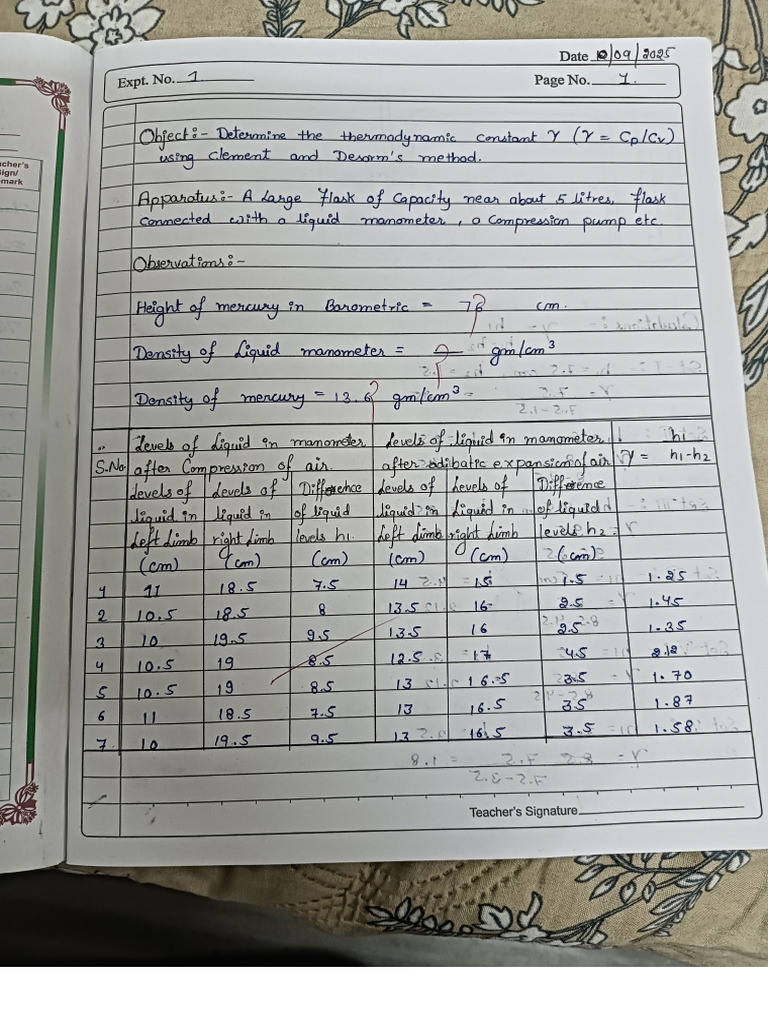 Date 10/09/2025
Expt. No. 1
Page No. 1.
Object:- Determine the thermodynamic constant γ (γ = Cp/Cv)
using Clement and Desorm's method.
Apparatus:- A Large flask of Capacity near about 5 litres, flask
connected with a liquid manometer, a compression pump etc.
Observations:-
Height of mercury in Barometric = 76 cm.
Density of Liquid manometer = gm/cm³
Density of mercury = 13.6 gm/cm³
S.No. Levels of Liquid in manometer after Compression of air. Levels of liquid in manometer after adibatic expansion of air γ = h1 / h1-h2
Levels of liquid in Left Limb (cm) Levels of Liquid in right Limb (cm) Difference of liquid levels h1. (cm) Levels of liquid in Left limb (cm) Levels of Liquid in right limb (cm) Difference of liquid levels h2. (cm)
1 11 18.5 7.5 14 15 1.5 1.25
2 10.5 18.5 8 13.5 16 2.5 1.45
3 10 19.5 9.5 13.5 16 2.5 1.35
4 10.5 19 8.5 12.5 17 4.5 2.12
5 10.5 19 8.5 13 16.5 3.5 1.70
6 11 18.5 7.5 13 16.5 3.5 1.87
7. 10 19.5 9.5 13 16.5 3.5 1.58
Teacher's Signature